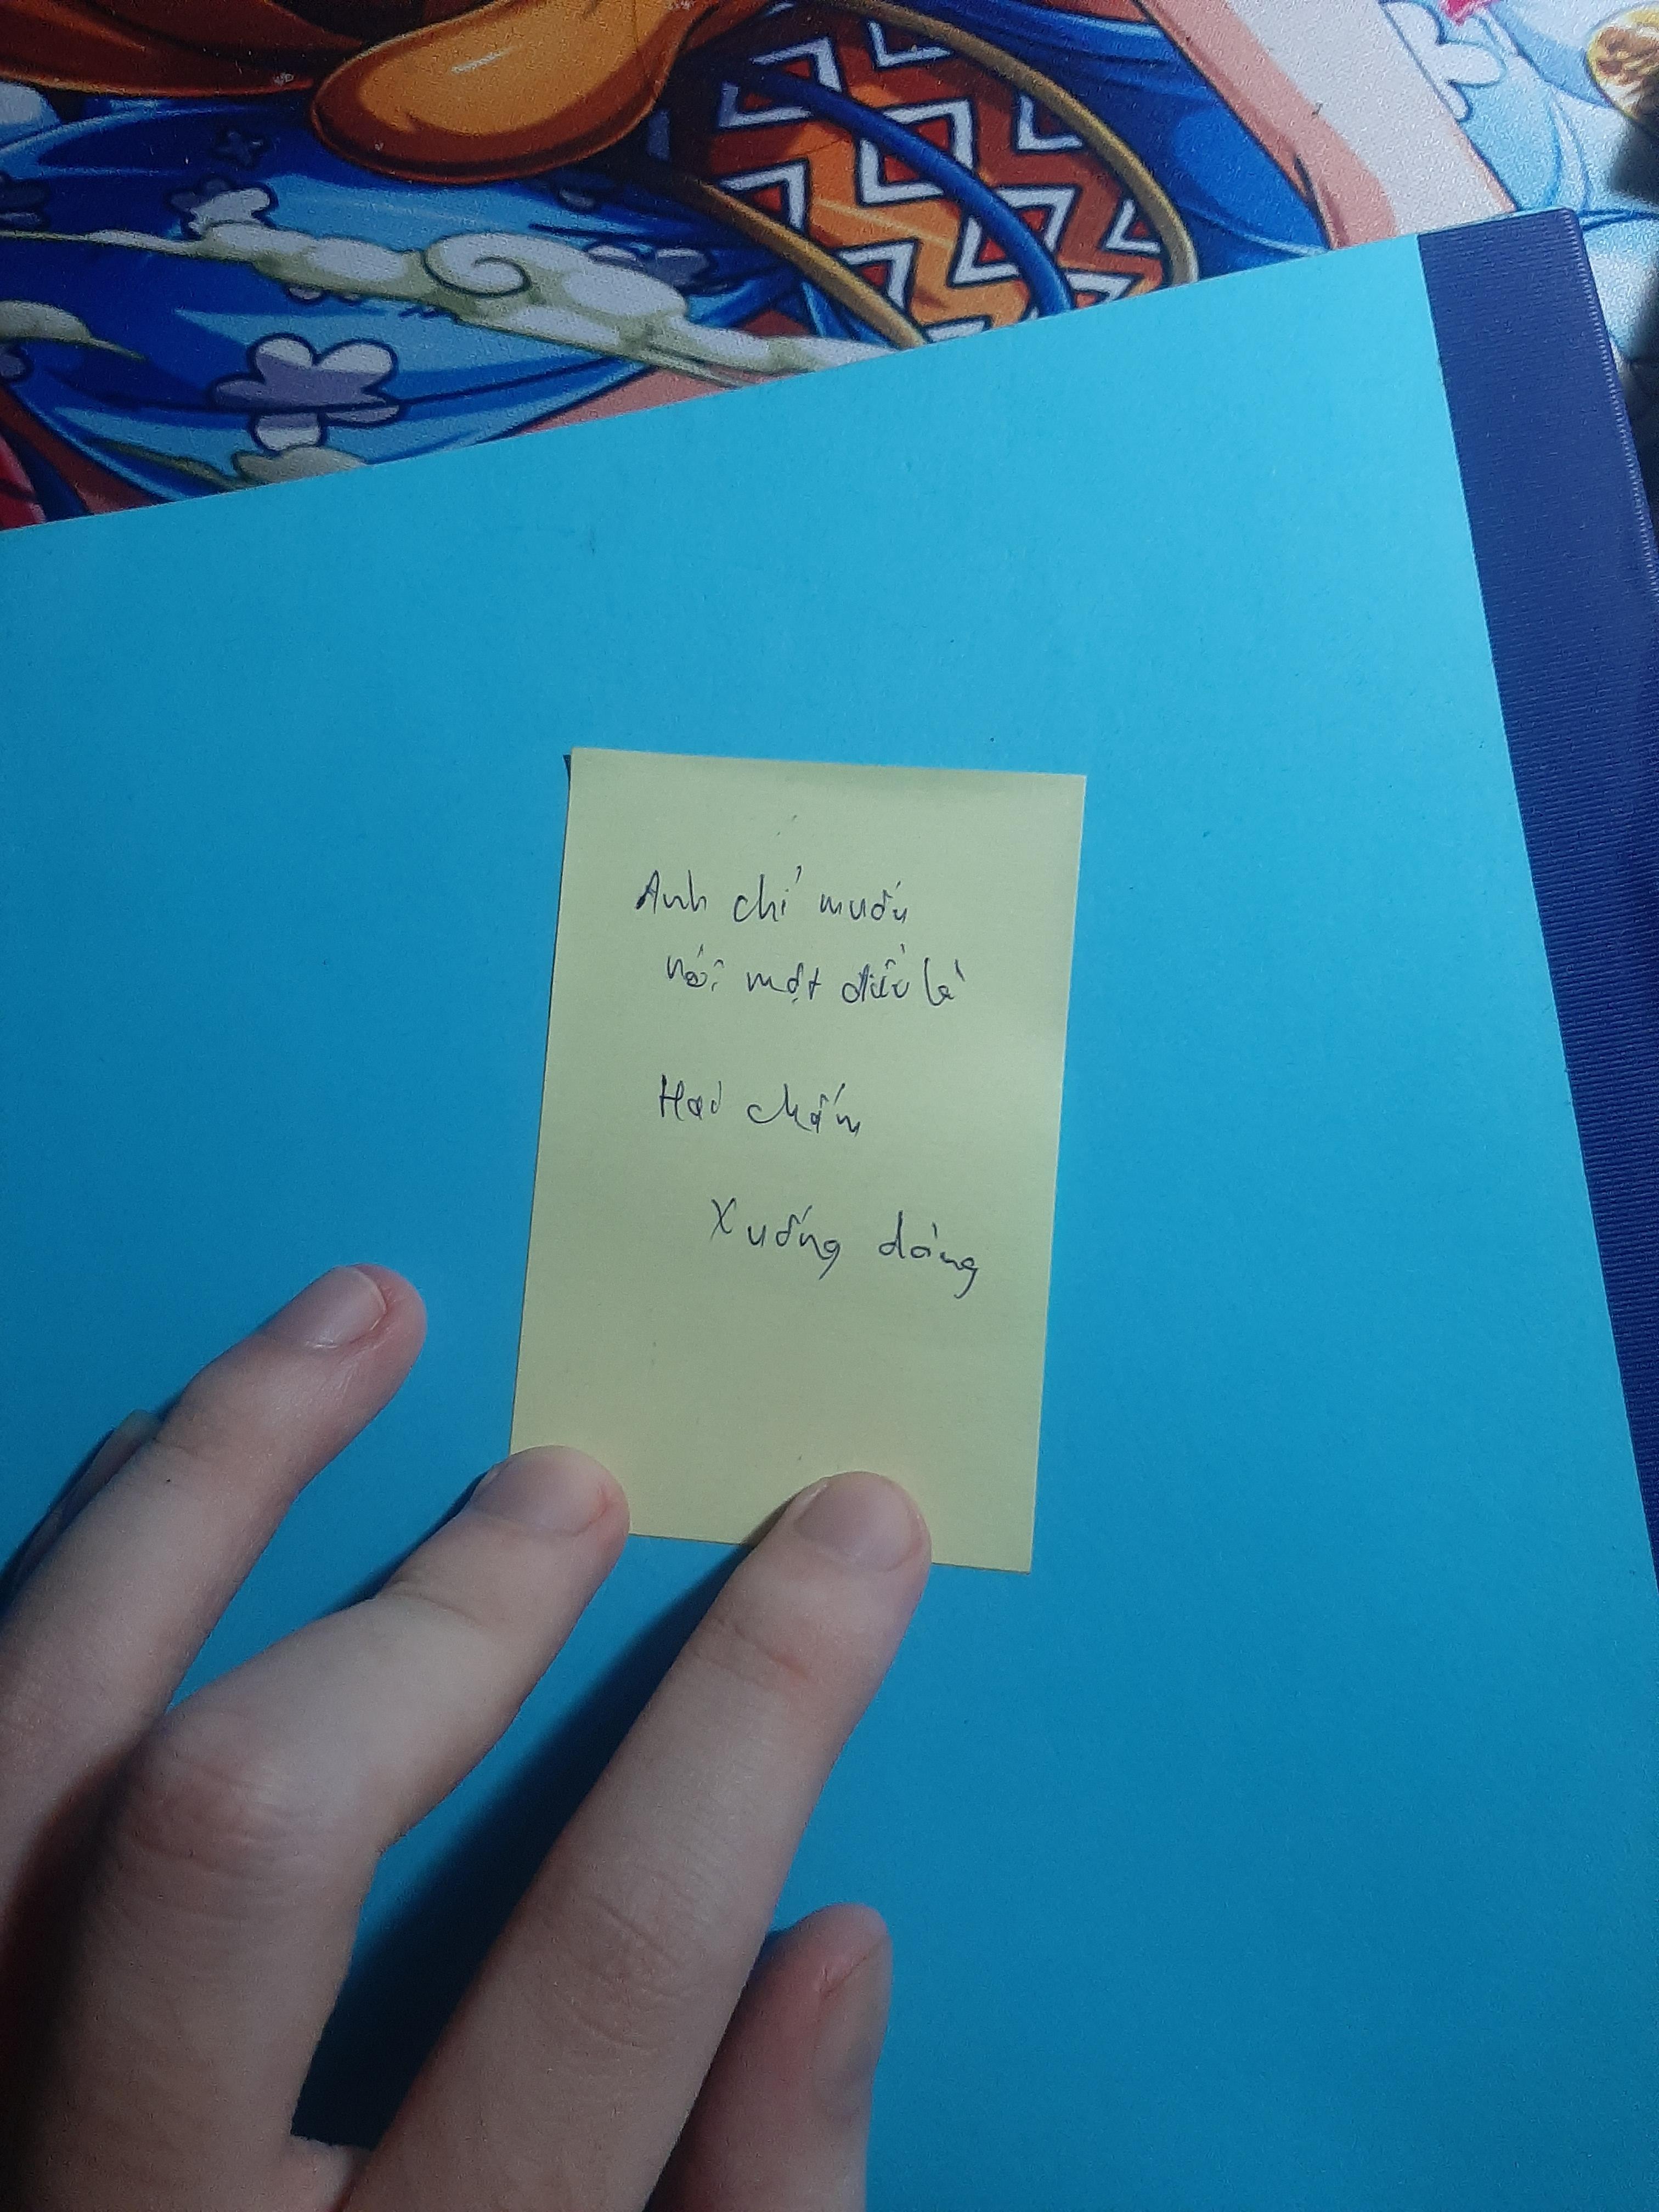 Anh chỉ muốn
nói một điều là
Hai chấm
Xuống dòng